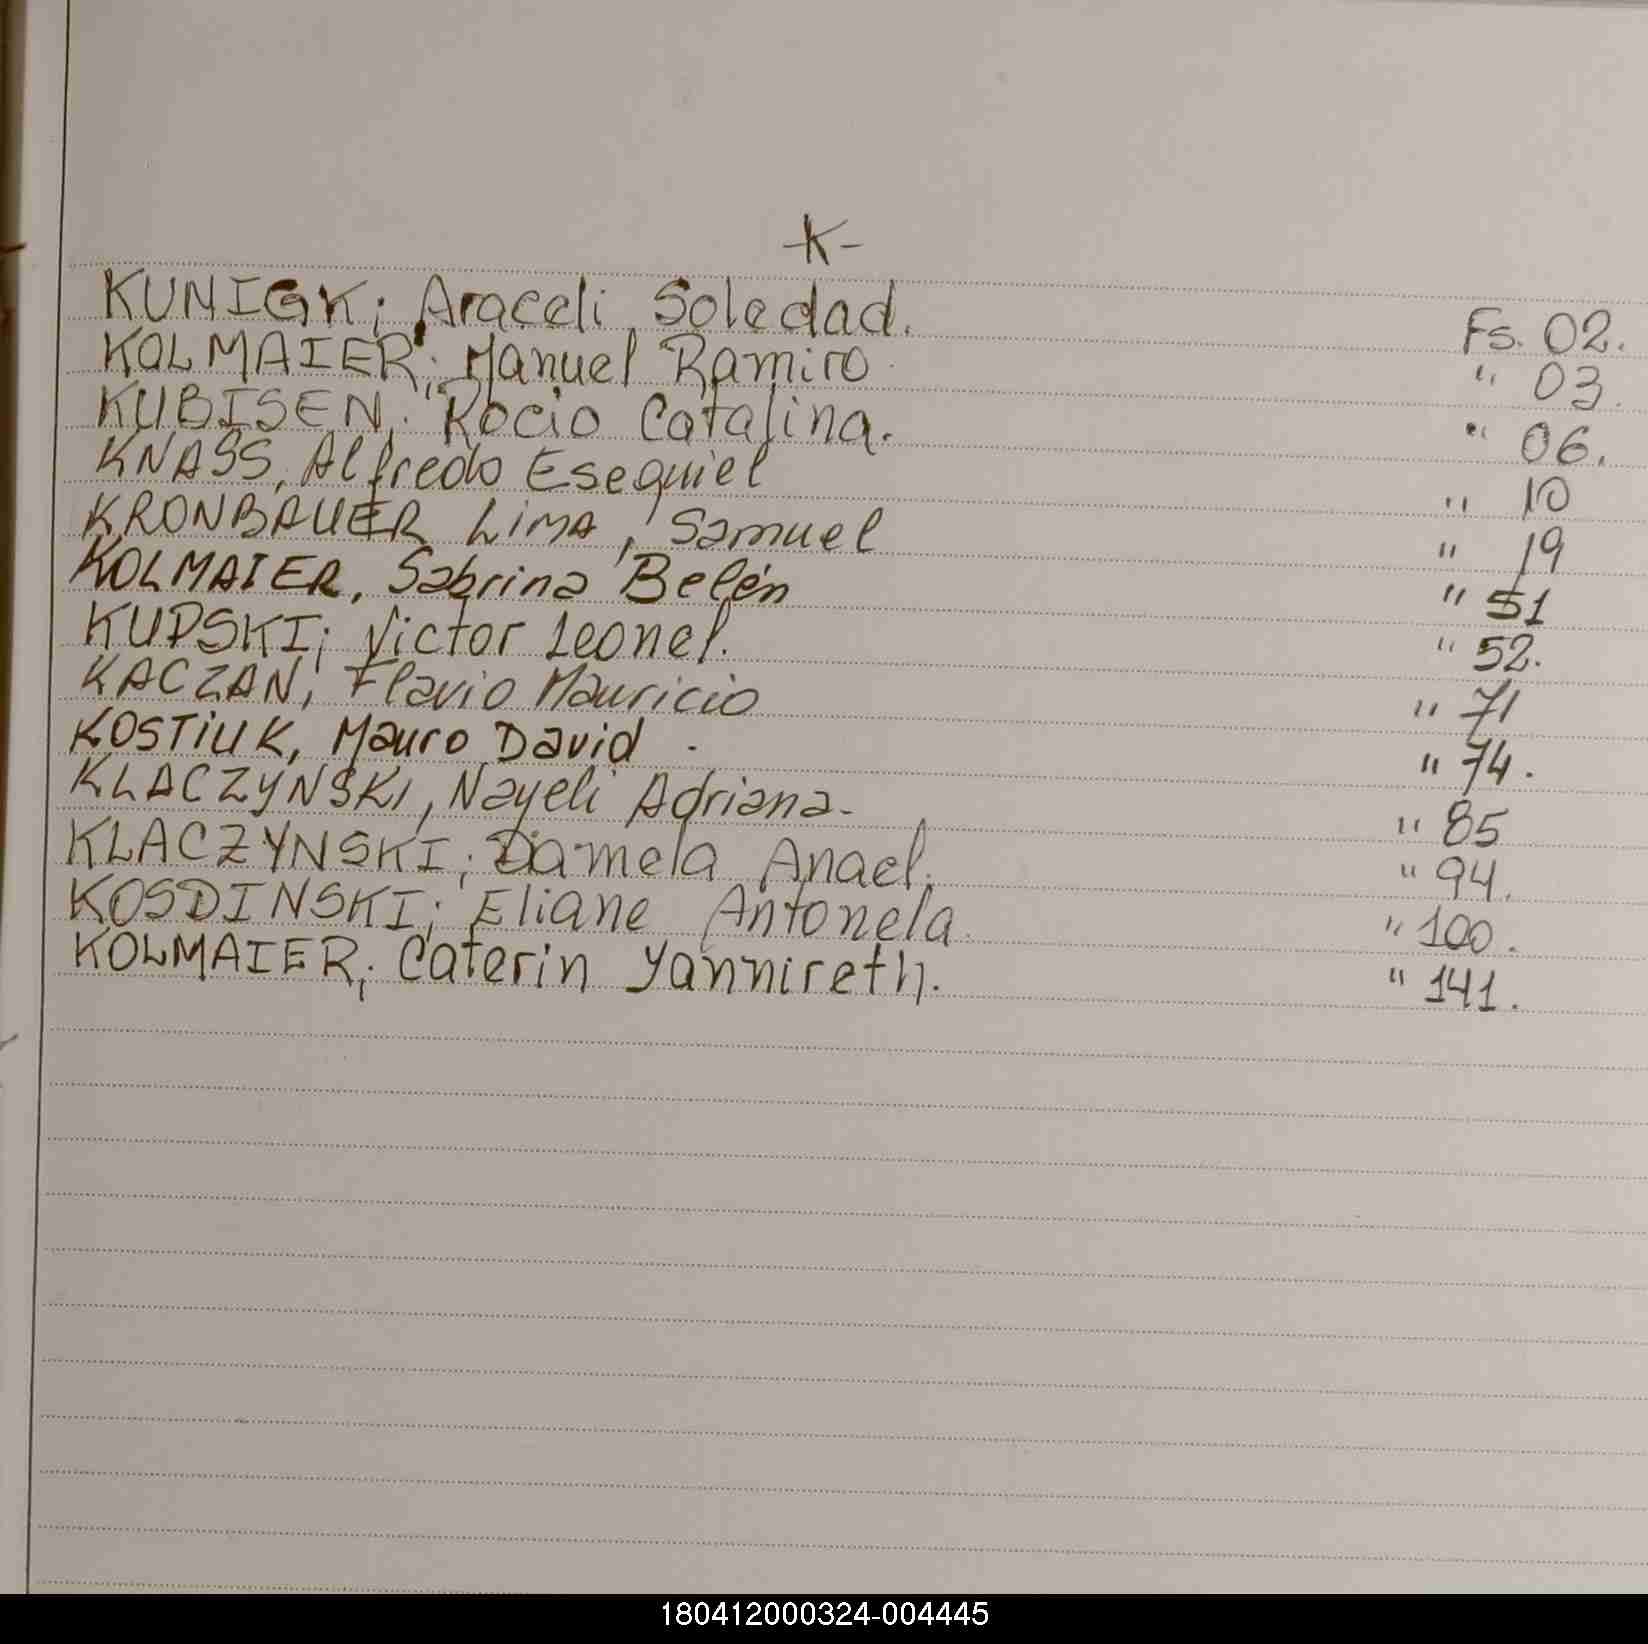 -K-
KUNIGK; Araceli Soledad. Fs. 02.
KOLMAIER; Manuel Ramiro " 03.
KUBISEN, Rocio Catalina. " 06.
KNASS, Alfredo Esequiel " 10
KRONBAUER LIMA, Samuel " 19
KOLMAIER, Sabrina Belén " 51
KUPSKI; Victor Leonel. " 52.
KACZAN, Flavio Mauricio " 71
KOSTIUK, Mauro David. " 74.
KLACZYNSKI, Nayeli Adriana- " 85
KLACZYNSKI; Damela Anael. " 94.
KOSDINSKI; Eliane Antonela. " 100.
KOLMAIER; Caterin Yannireth. " 141.
180412000324-004445